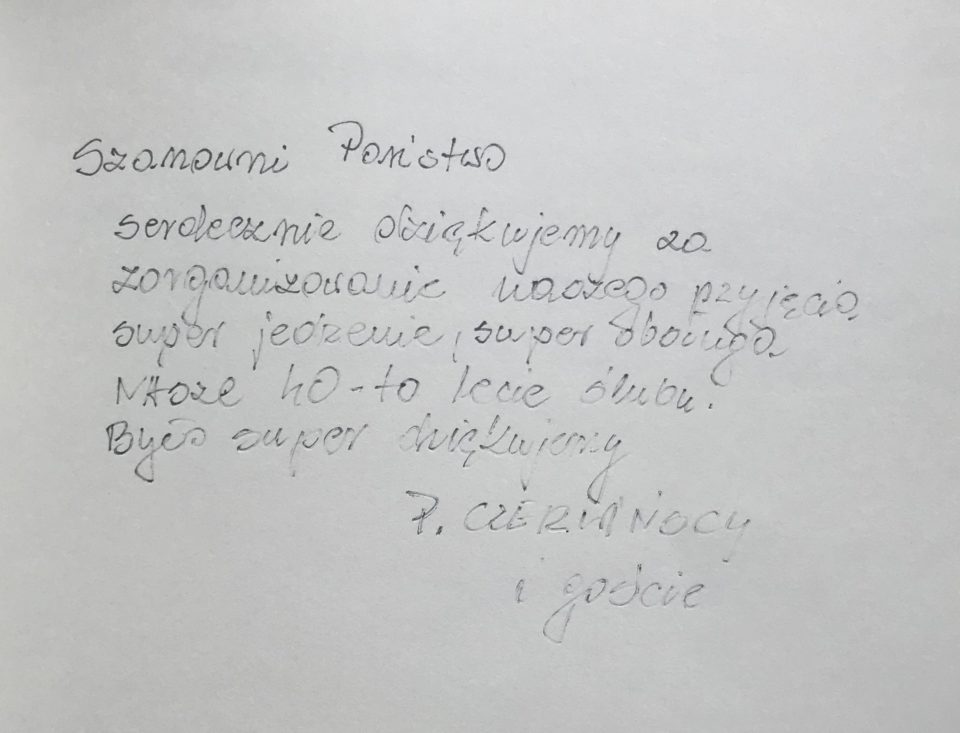 Szanowni Państwo
serdecznie dziąkujemy za
zorganizowanie naszego przyjęcia,
super jedzenie, super obsługa
Nasze 40-to lecie ślubu.
Było super dziąkujemy
P.
i goście